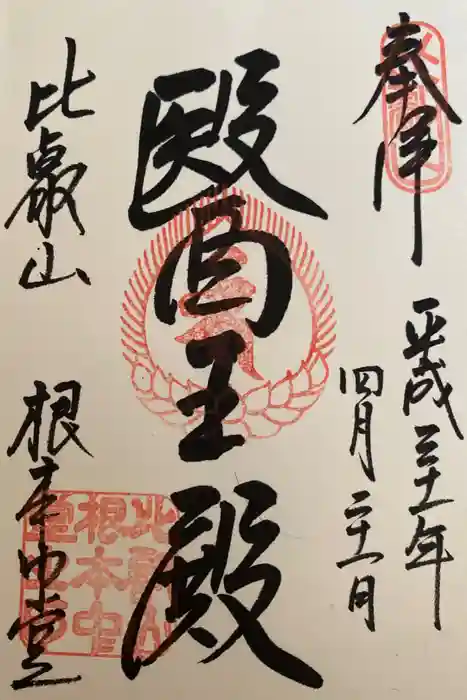 奉拝
平成三十一年
四月二十一日
醫王殿
比叡山
根本中堂
比叡山
根本中
堂之印